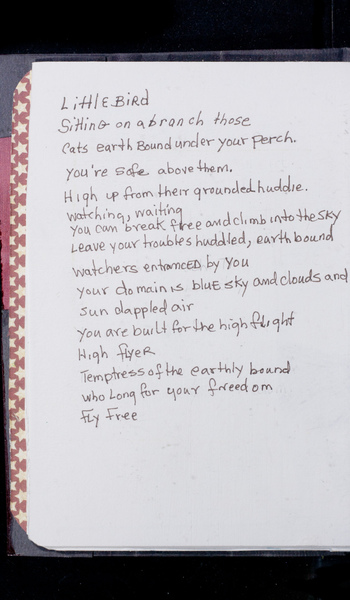 LittLE BiRd
Sitting on a branch those
Cats earth Bound under your perch.
you're safe above them.
High up from their grounded huddle.
watching, waiting
you can break free and climb into the sky
Leave your troubles huddled, earth bound
watchers entranced by you
your domain is bluE sky and clouds and
sun dappled air
you are built for the high flight
High flyer
Temptress of the earthly bound
who Long for your freedom
fly Free